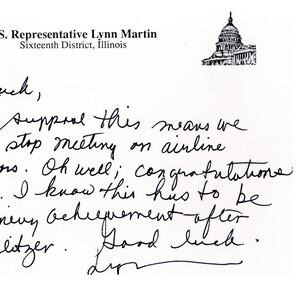 S. Representative Lynn Martin
Sixteenth District, Illinois
uck,
suppose this means we
stop meeting on airline
Oh well; congratulations
. I know this has to be
achievement after
litzer. Good luck.
Lynn